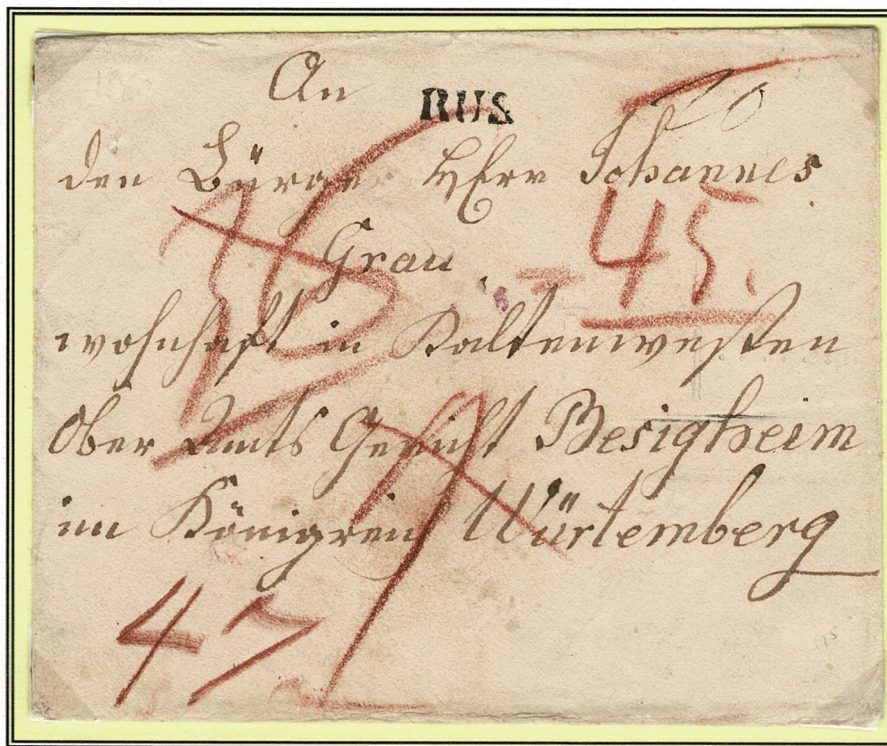 An
RUS
den Bürger Herr Johannes
Grau
45.
wohnhaft in Kaltenwesten
Ober Amts Gericht Besigheim
im Königreich Würtemberg
47